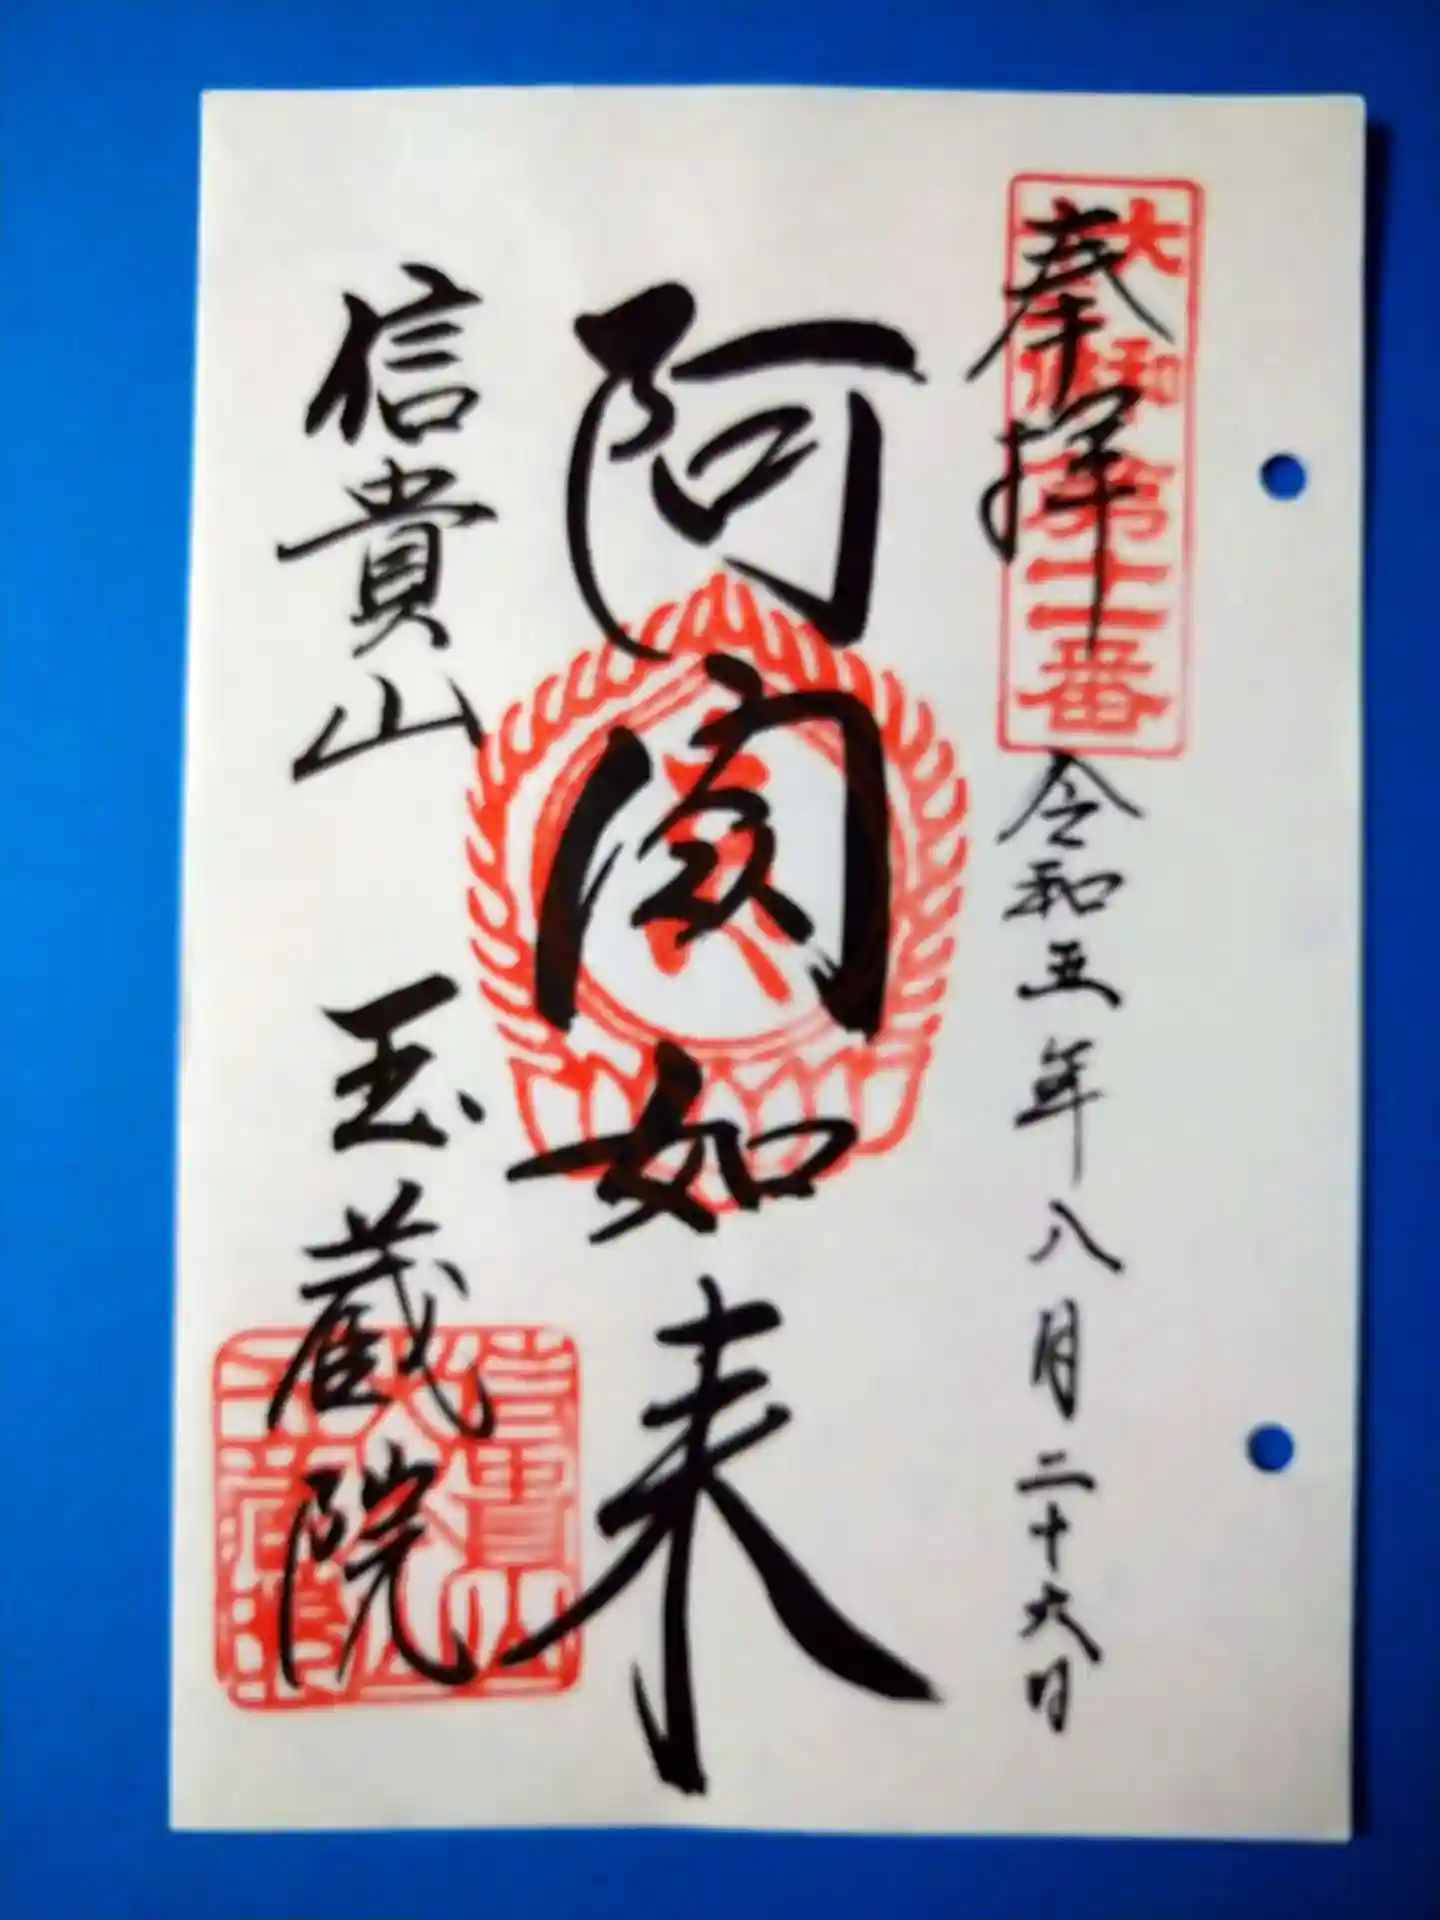 大和
第十一番
奉拝
令和五年八月二十六日
阿閦如来
信貴山 玉蔵院
信貴山